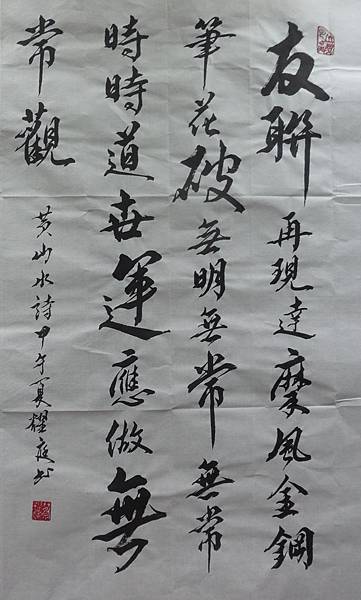 友聯再現達摩風金鋼
筆花破無明無常無常
時時道世運應做無
常觀
黃山水詩甲午夏耀庭書